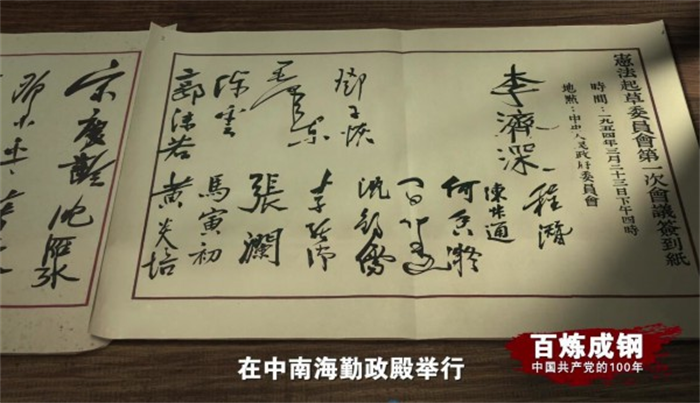 憲法起草委員會第一次會議簽到紙
時間：一九五四年三月二十三日下午四時
地點：中央人民政府委員會
李濟深
程潛
陳叔通
何香凝
鄧子恢
沈鈞儒
毛澤東
張瀾
陳雲
馬寅初
郭沫若
黃炎培
宋慶齡
沈雁冰
在中南海勤政殿举行
百炼成钢
中国共产党的100年